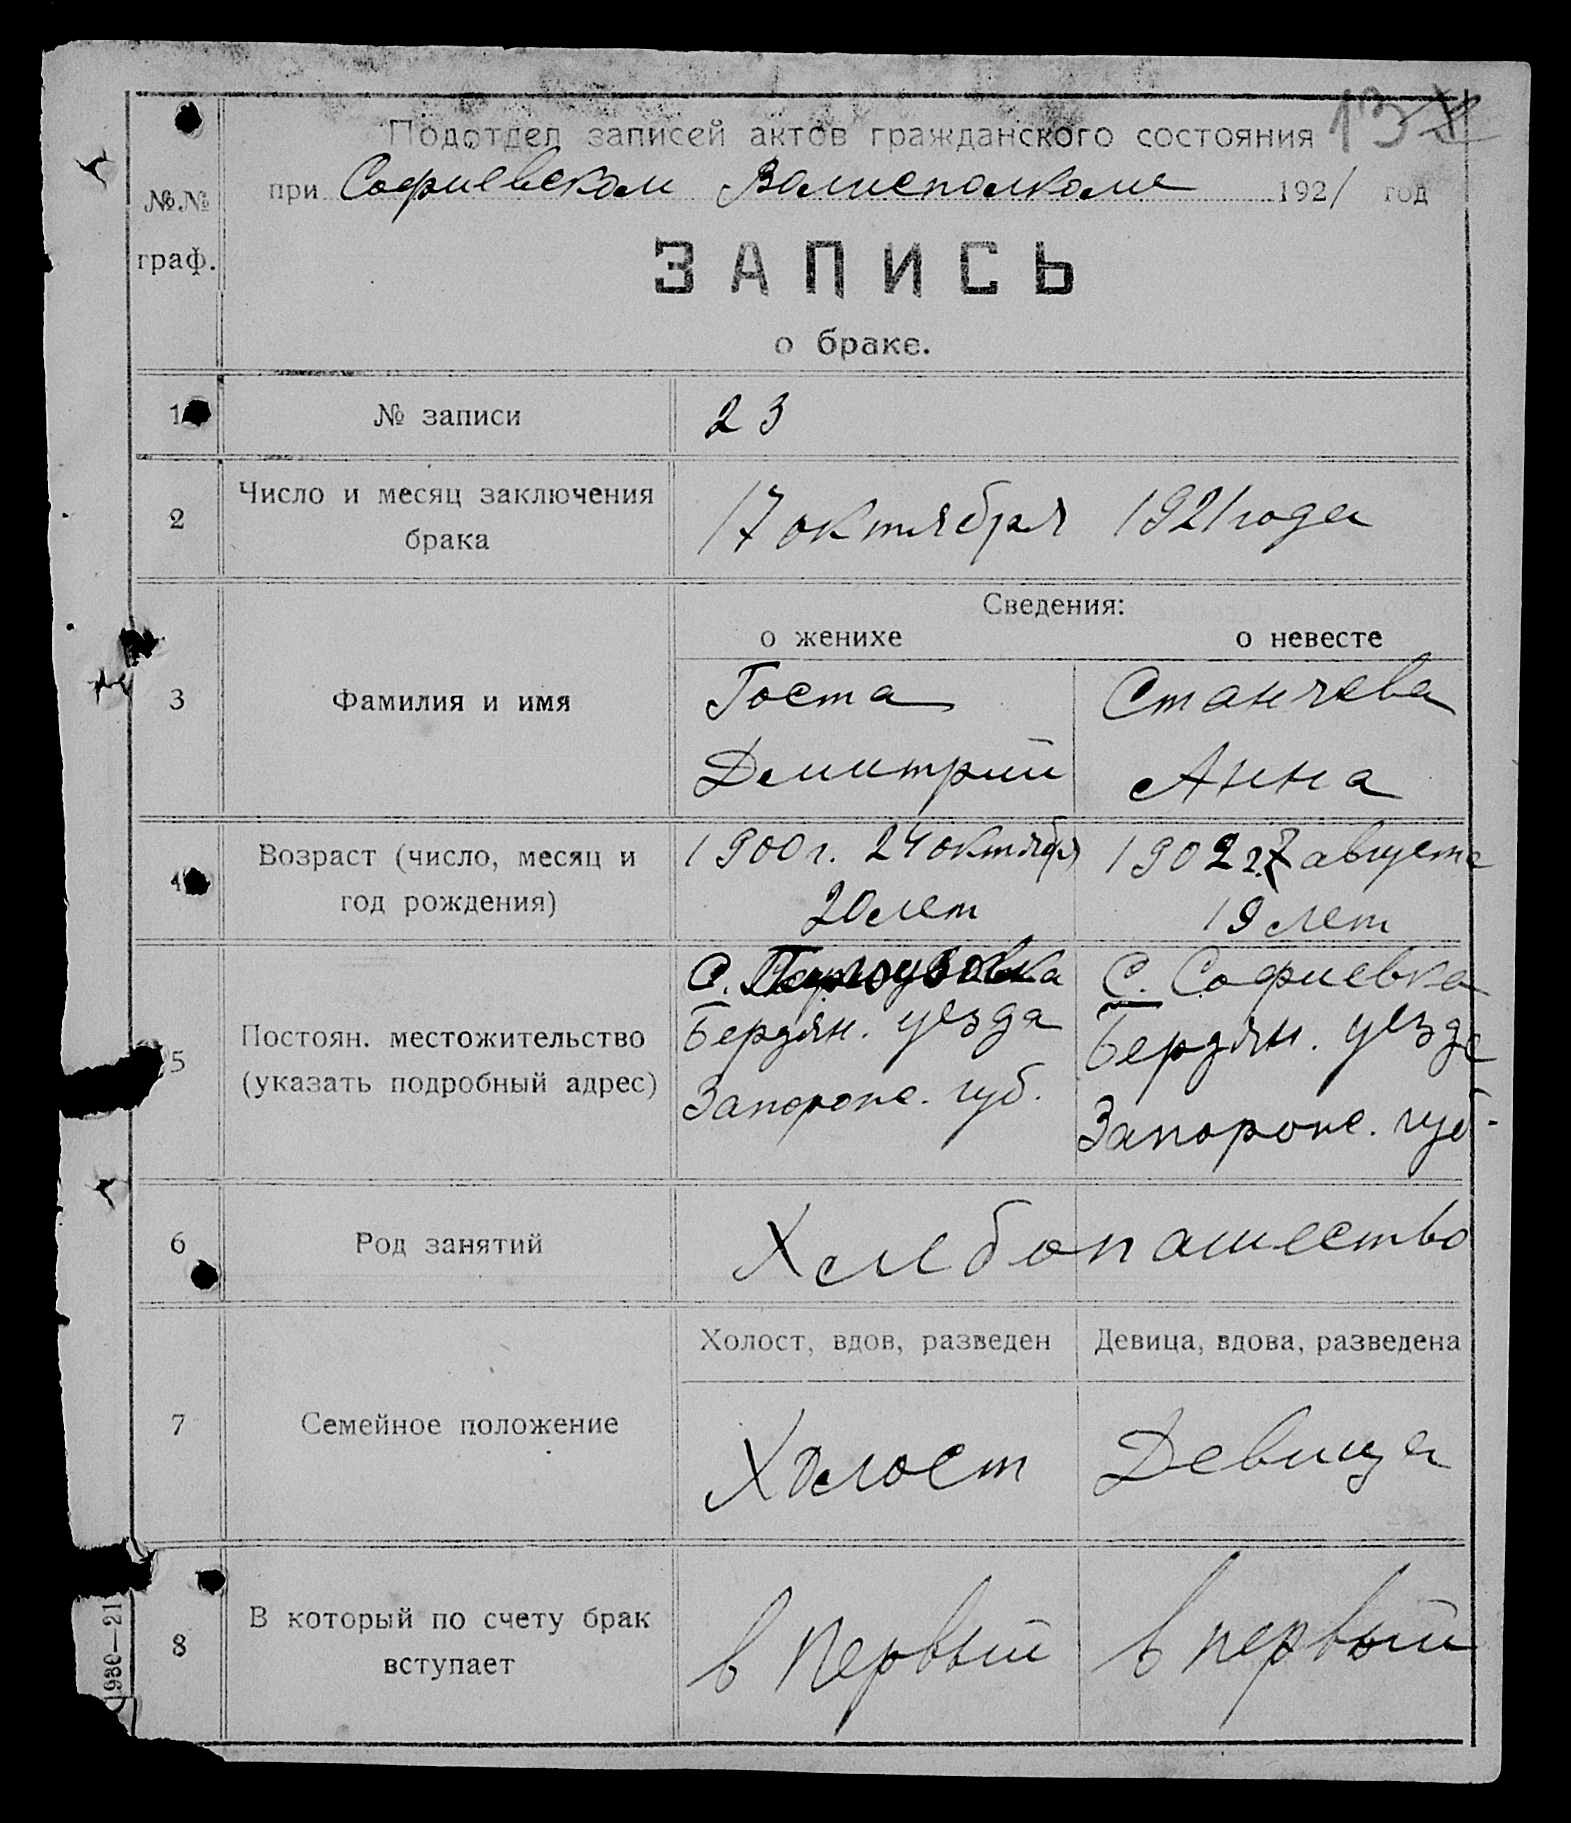 Подотдел записей актов гражданского состояния 13
при Софиевском Волисполкоме 1921 год
№№
граф.
ЗАПИСЬ
о браке.
1 № записи 23
2 Число и месяц заключения
брака
17 октября 1921 года
Сведения:
о женихе о невесте
3 Фамилия и имя
Госта Станчева
Демитрий Анна
4 Возраст (число, месяц и
год рождения)
1900 г. 24 октября 1902 г. 7 августа
20 лет 19 лет
5 Постоян. местожительство
(указать подробный адрес)
С. С. Софиевка
Бердян. уезда Бердян. уезда
Запорож. губ. Запорож. губ.
6 Род занятий Хлебопашество
Холост, вдов, разведен Девица, вдова, разведена
7 Семейное положение
Холост Девица
8 В который по счету брак
вступает
в первый в первый
1980—21